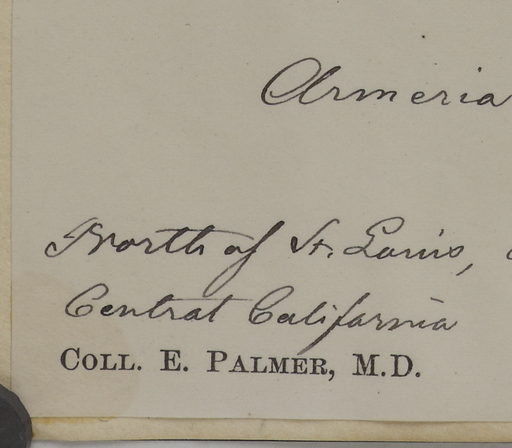 Armeria
North of St. Louis,
Central California
COLL. E. PALMER, M.D.